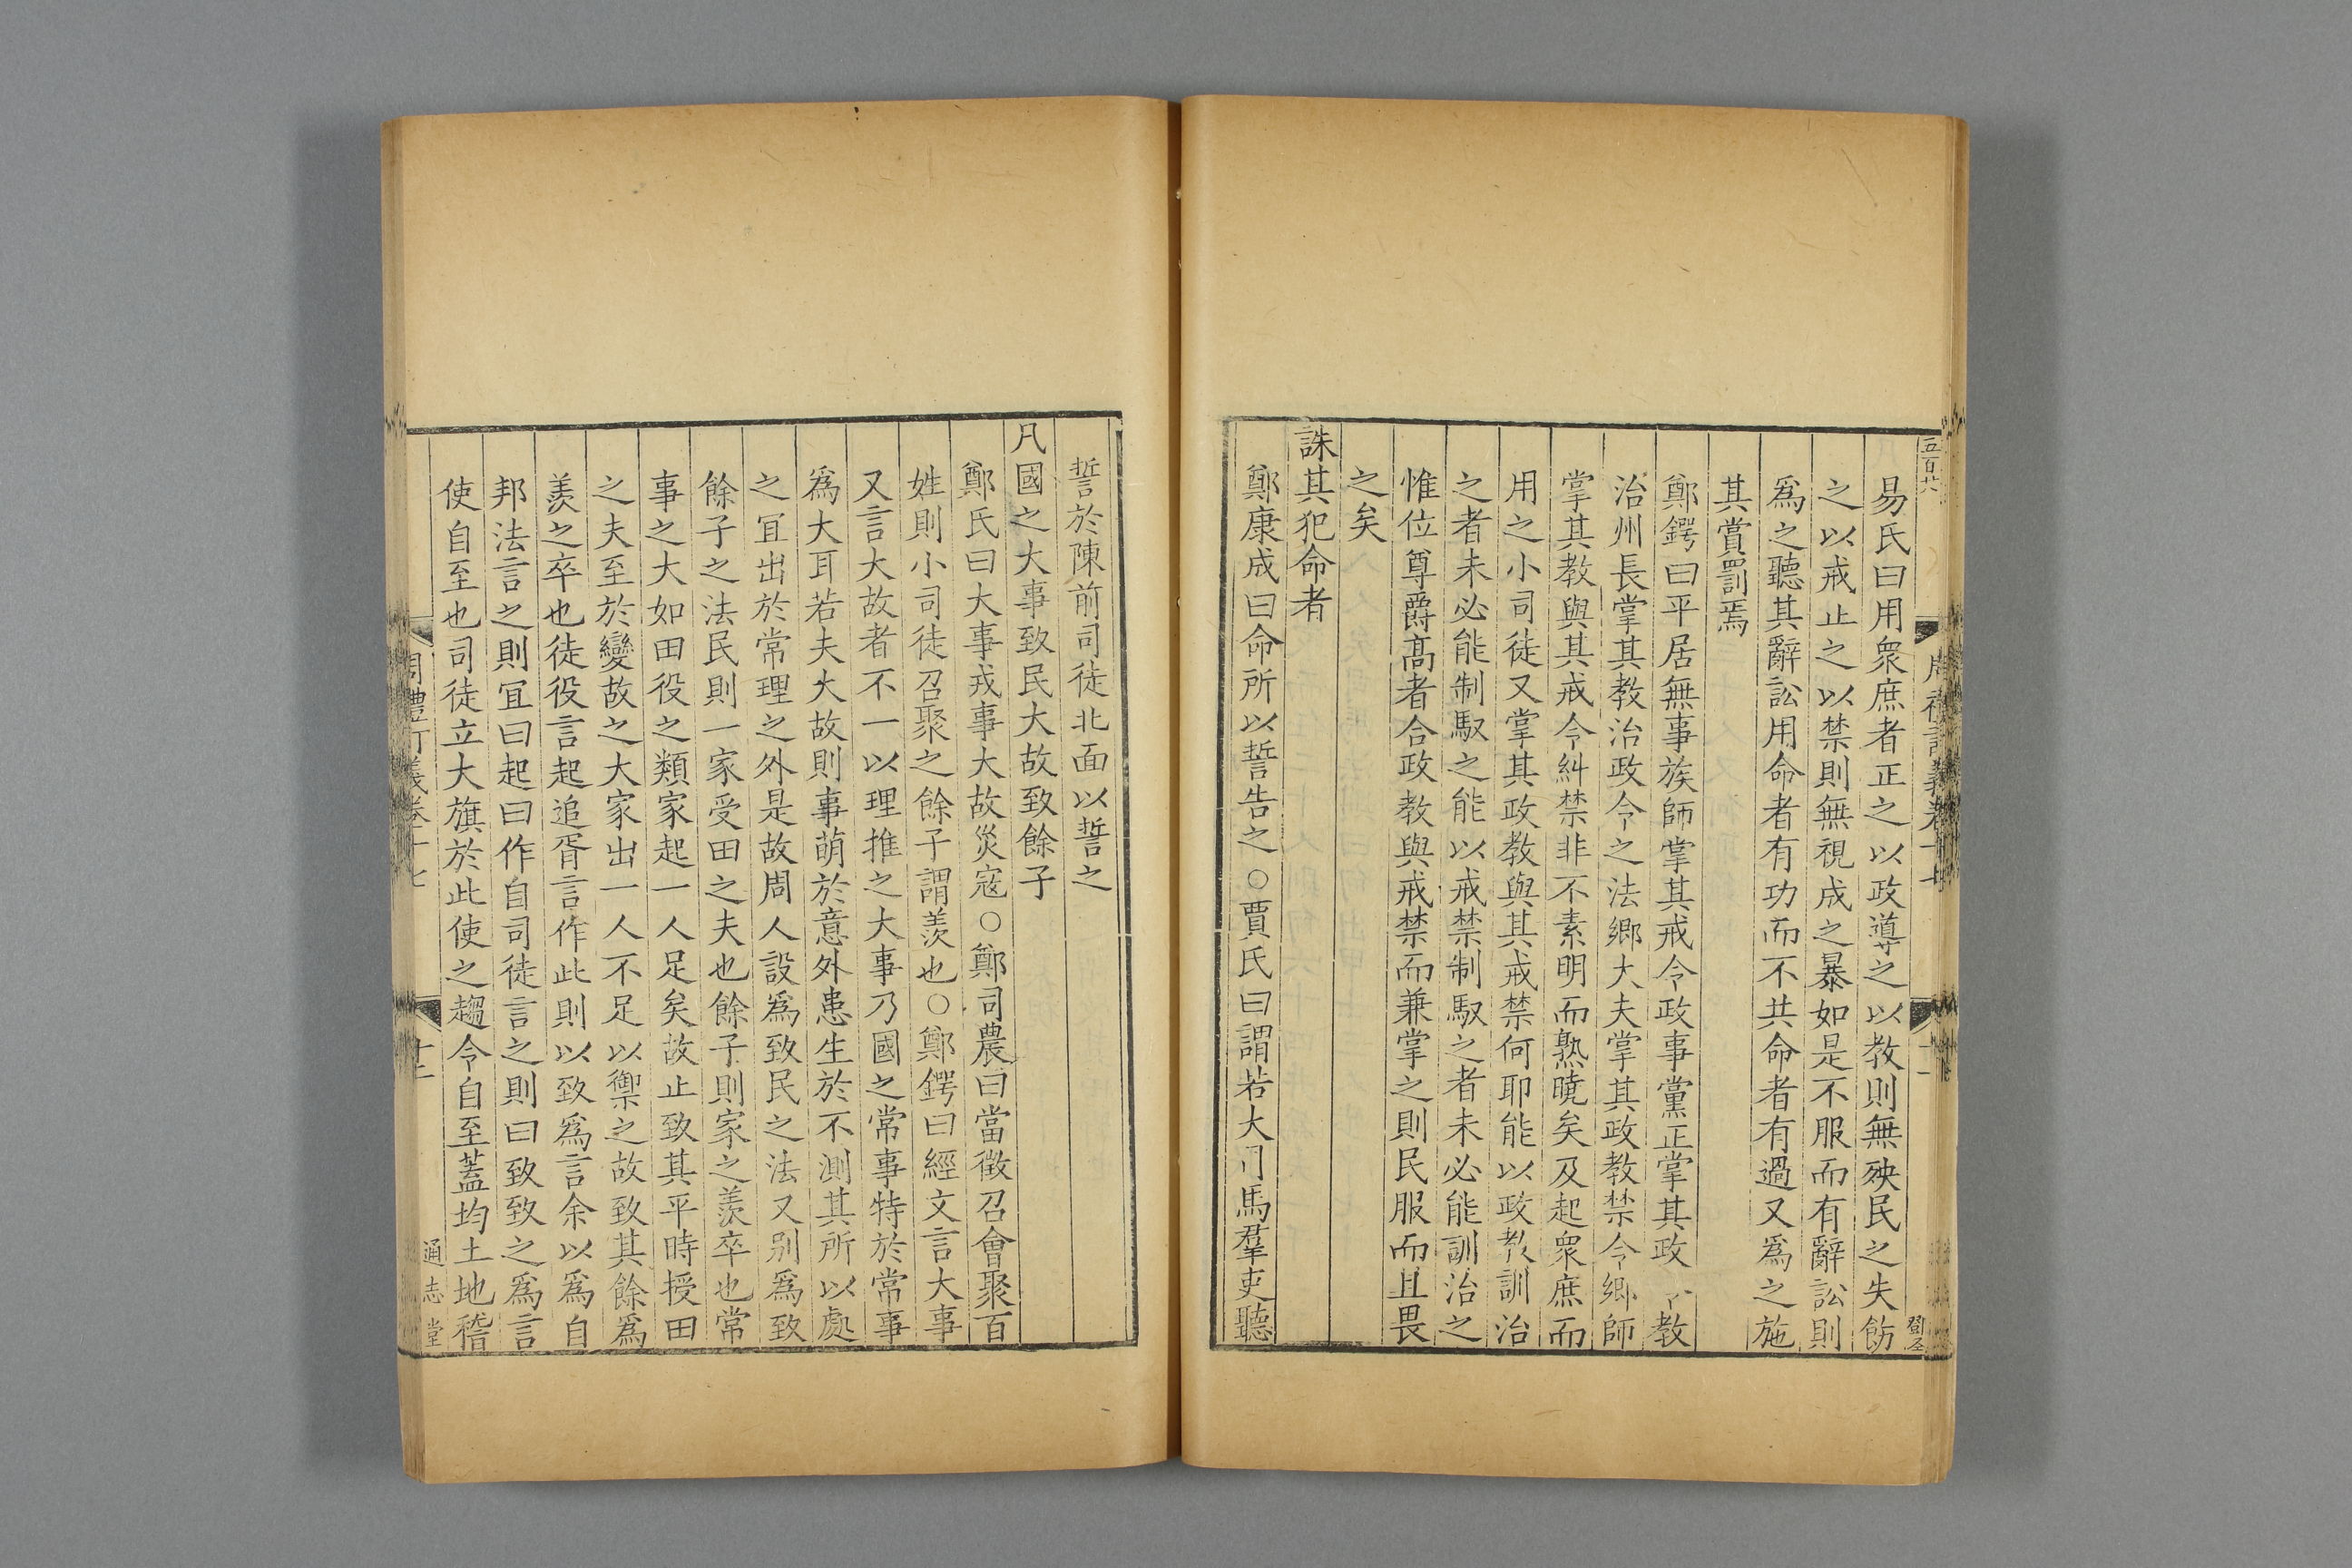 五百廿六
易氏曰用衆庶者正之以政導之以教則無殃民之失飭
之以戒止之以禁則無視成之暴如是不服而有辭訟則
爲之聽其辭訟用命者有功而不共命者有過又爲之施
其賞罰焉
鄭鍔曰平居無事族師掌其戒令政事黨正掌其政 教
治州長掌其教治政令之法鄉大夫掌其政教禁令鄉師
掌其教與其戒令糾禁非不素明而熟曉矣及起衆庶而
用之小司徒又掌其政教與其戒禁何耶能以政教訓治
之者未必能制馭之能以戒禁制馭之者未必能訓治之
惟位尊爵高者合政教與戒禁而兼掌之則民服而且畏
之矣
誅其犯命者
鄭康成曰命所以誓告之○賈氏曰謂若大司馬羣吏聽
誓於陳前司徒北面以誓之
凡國之大事致民大故致餘子
鄭氏曰大事戎事大故災寇○鄭司農曰當徵召會聚百
姓則小司徒召聚之餘子謂羨也○鄭鍔曰經文言大事
又言大故者不一以理推之大事乃國之常事特於常事
爲大耳若夫大故則事萌於意外患生於不測其所以處
之冝出於常理之外是故周人設爲致民之法又别爲致
餘子之法民則一家受田之夫也餘子則家之羨卒也常
事之大如田役之類家起一人足矣故止致其平時授田
之夫至於變故之大家出一人不足以禦之故致其餘爲
羨之卒也徒役言起追胥言作此則以致爲言余以爲自
邦法言之則冝曰起曰作自司徒言之則曰致致之爲言
使自至也司徒立大旗於此使之趨令自至蓋均土地稽
周禮訂義卷十七
十二
通志堂